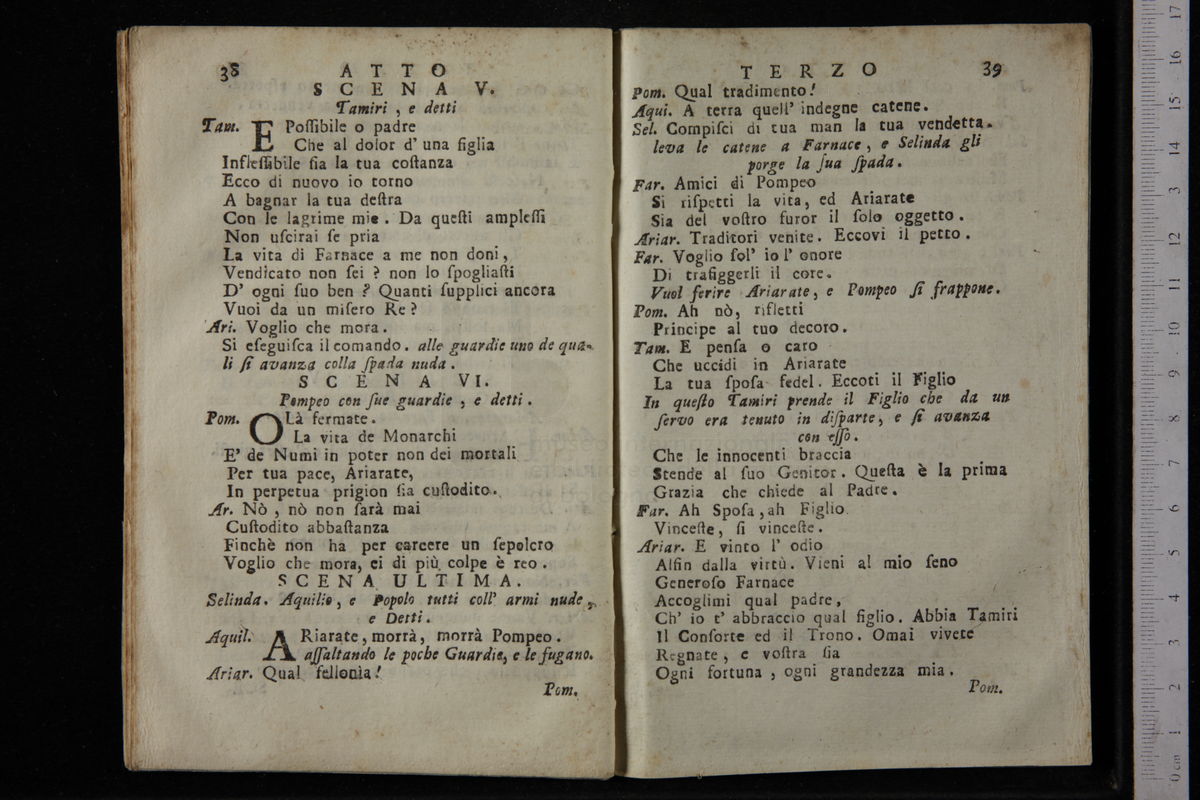 38
ATTO
SCENA V.
Tamiri , e detti
Tam. E Poſſibile o padre
Che al dolor d' una figlia
Infleſſibile ſia la tua coſtanza
Ecco di nuovo io torno
A bagnar la tua deſtra
Con le lagrime mie . Da queſti ampleſſi
Non uſcirai ſe pria
La vita di Farnace a me non doni ,
Vendicato non ſei ? non lo ſpogliaſti
D' ogni ſuo ben ? Quanti ſupplici ancora
Vuoi da un miſero Re ?
Ari. Voglio che mora .
Si eſeguiſca il comando . alle guardie uno de qua-
li ſi avanza colla ſpada nuda .
SCENA VI.
Pompeo con ſue guardie , e detti .
Pom. OLà fermate .
La vita de Monarchi
E' de Numi in poter non dei mortali
Per tua pace, Ariarate,
In perpetua prigion ſia cuſtodito .
Ar. Nò , nò non ſarà mai
Cuſtodito abbaſtanza
Finchè non ha per carcere un ſepolcro
Voglio che mora, ei di più colpe è reo .
SCENA ULTIMA.
Selinda. Aquilio, e Popolo tutti coll' armi nude ,
e Detti .
Aquil. ARiarate, morrà, morrà Pompeo .
aſſaltando le poche Guardie, e le fugano.
Ariar. Qual fellonìa !
Pom.
TERZO
39
Pom. Qual tradimento !
Aqui. A terra quell' indegne catene .
Sel. Compiſci di tua man la tua vendetta .
leva le catene a Farnace , e Selinda gli
porge la ſua ſpada .
Far. Amici di Pompeo
Si riſpetti la vita, ed Ariarate
Sia del voſtro furor il ſolo oggetto .
Ariar. Traditori venite . Eccovi il petto .
Far. Voglio ſol' io l' onore
Di trafiggerli il core .
Vuol ferire Ariarate, e Pompeo ſi frappone .
Pom. Ah nò, rifletti
Principe al tuo decoro .
Tam. E penſa o caro
Che uccidi in Ariarate
La tua ſpoſa fedel . Eccoti il Figlio
In queſto Tamiri prende il Figlio che da un
ſervo era tenuto in diſparte, e ſi avanza
con eſſo .
Che le innocenti braccia
Stende al ſuo Genitor . Queſta è la prima
Grazia che chiede al Padre .
Far. Ah Spoſa, ah Figlio
Vinceſte, ſi vinceſte .
Ariar. E vinto l' odio
Alfin dalla virtù . Vieni al mio ſeno
Generoſo Farnace
Accoglimi qual padre,
Ch' io t' abbraccio qual figlio . Abbia Tamiri
Il Conſorte ed il Trono . Omai vivete
Regnate , e voſtra ſia
Ogni fortuna , ogni grandezza mia .
Pom.
0 cm 1 2 3 4 5 6 7 8 9 10 11 12 13 14 15 16 17